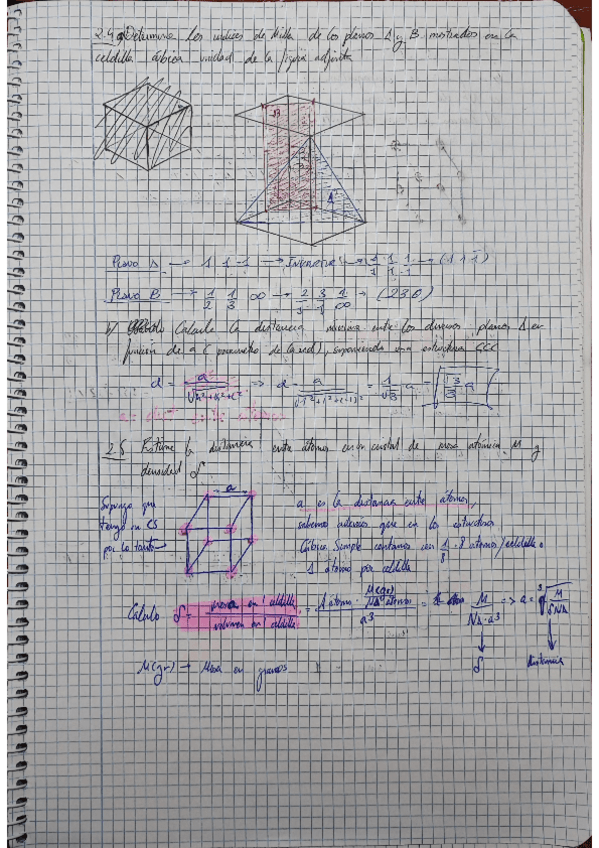 2.4 a) Determine los indices de Miller de los planos A y B mostrados en la
celdilla cúbica unidad de la figura adjunta
B
A
Plano A → 1 1 -1 → Inversa → 1/1 1/1 1/-1 → (1 1 1̄)
Plano B → 1/2 1/3 ∞ → 2/1 3/1 1/∞ → (230)
b) Calcule la distancia entre los diversos planos A en
función de a (parametro de la red), suponiendo una estructura CCC
d = a/√(h²+k²+l²) => d = a/√(1²+1²+(-1)²) = 1/√3 a = √3/3 a
2.5 la distancia entre átomos en un cristal de masa atómica M y
densidad δ
Supongo que
tengo un CS
por lo tanto →
a
a es la distancia entre átomos,
sabemos además que en las estructuras
Cúbica Simple contamos con 1/8 · 8 átomos/celdilla =
1 átomo por celdilla
Calculo δ = masa en 1 celdilla/volumen en 1 celdilla = 1 átomo · M(gr)/NA átomos/a³ = M/NA·a³ => a = ³√(M/δNA)
δ
distancia
M(gr) → Masa en gramos